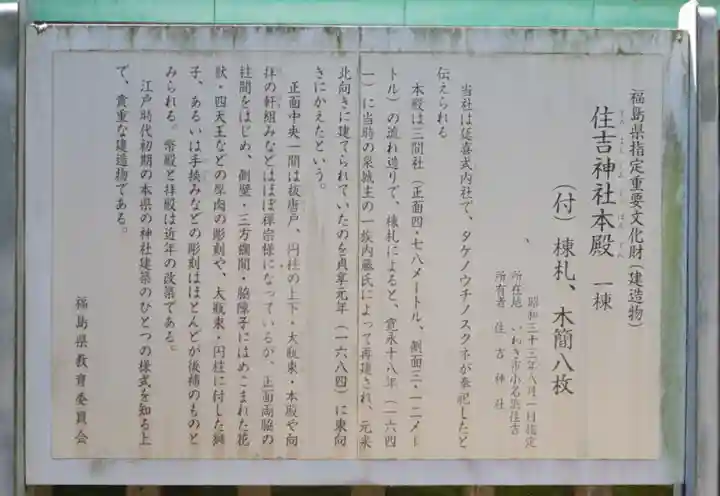 福島県指定重要文化財（建造物）
住吉神社本殿 一棟
（付）棟札、木簡八枚
昭和三十三年八月一日指定
所在地 いわき市小名浜住吉
所有者 住吉神社
当社は延喜式内社で、タケノウチノスクネが奉祀したと
伝えられる
本殿は三間社（正面四・七八メートル、側面三・一二メー
トル）の流れ造りで、棟札によると、寛永十八年（一六四
一）に当時の泉城主の一族内藤氏によって再建され、元来
北向きに建てられていたのを貞享元年（一六八四）に東向
きにかえたという。
正面中央一間は桟唐戸、円柱の上下・大瓶束・本殿や向
拝の軒組みなどはほぼ禅宗様になっているが、正面両脇の
柱間をはじめ、側壁・三方欄間・脇障子にはめこまれた花
獣・四天王などの厚肉の彫刻や、大瓶束・円柱に付した獅
子、あるいは手挟みなどの彫刻はほとんどが後補のものと
みられる。幣殿と拝殿は近年の改築である。
江戸時代初期の本県の神社建築のひとつの様式を知る上
で、貴重な建造物である。
福島県教育委員会